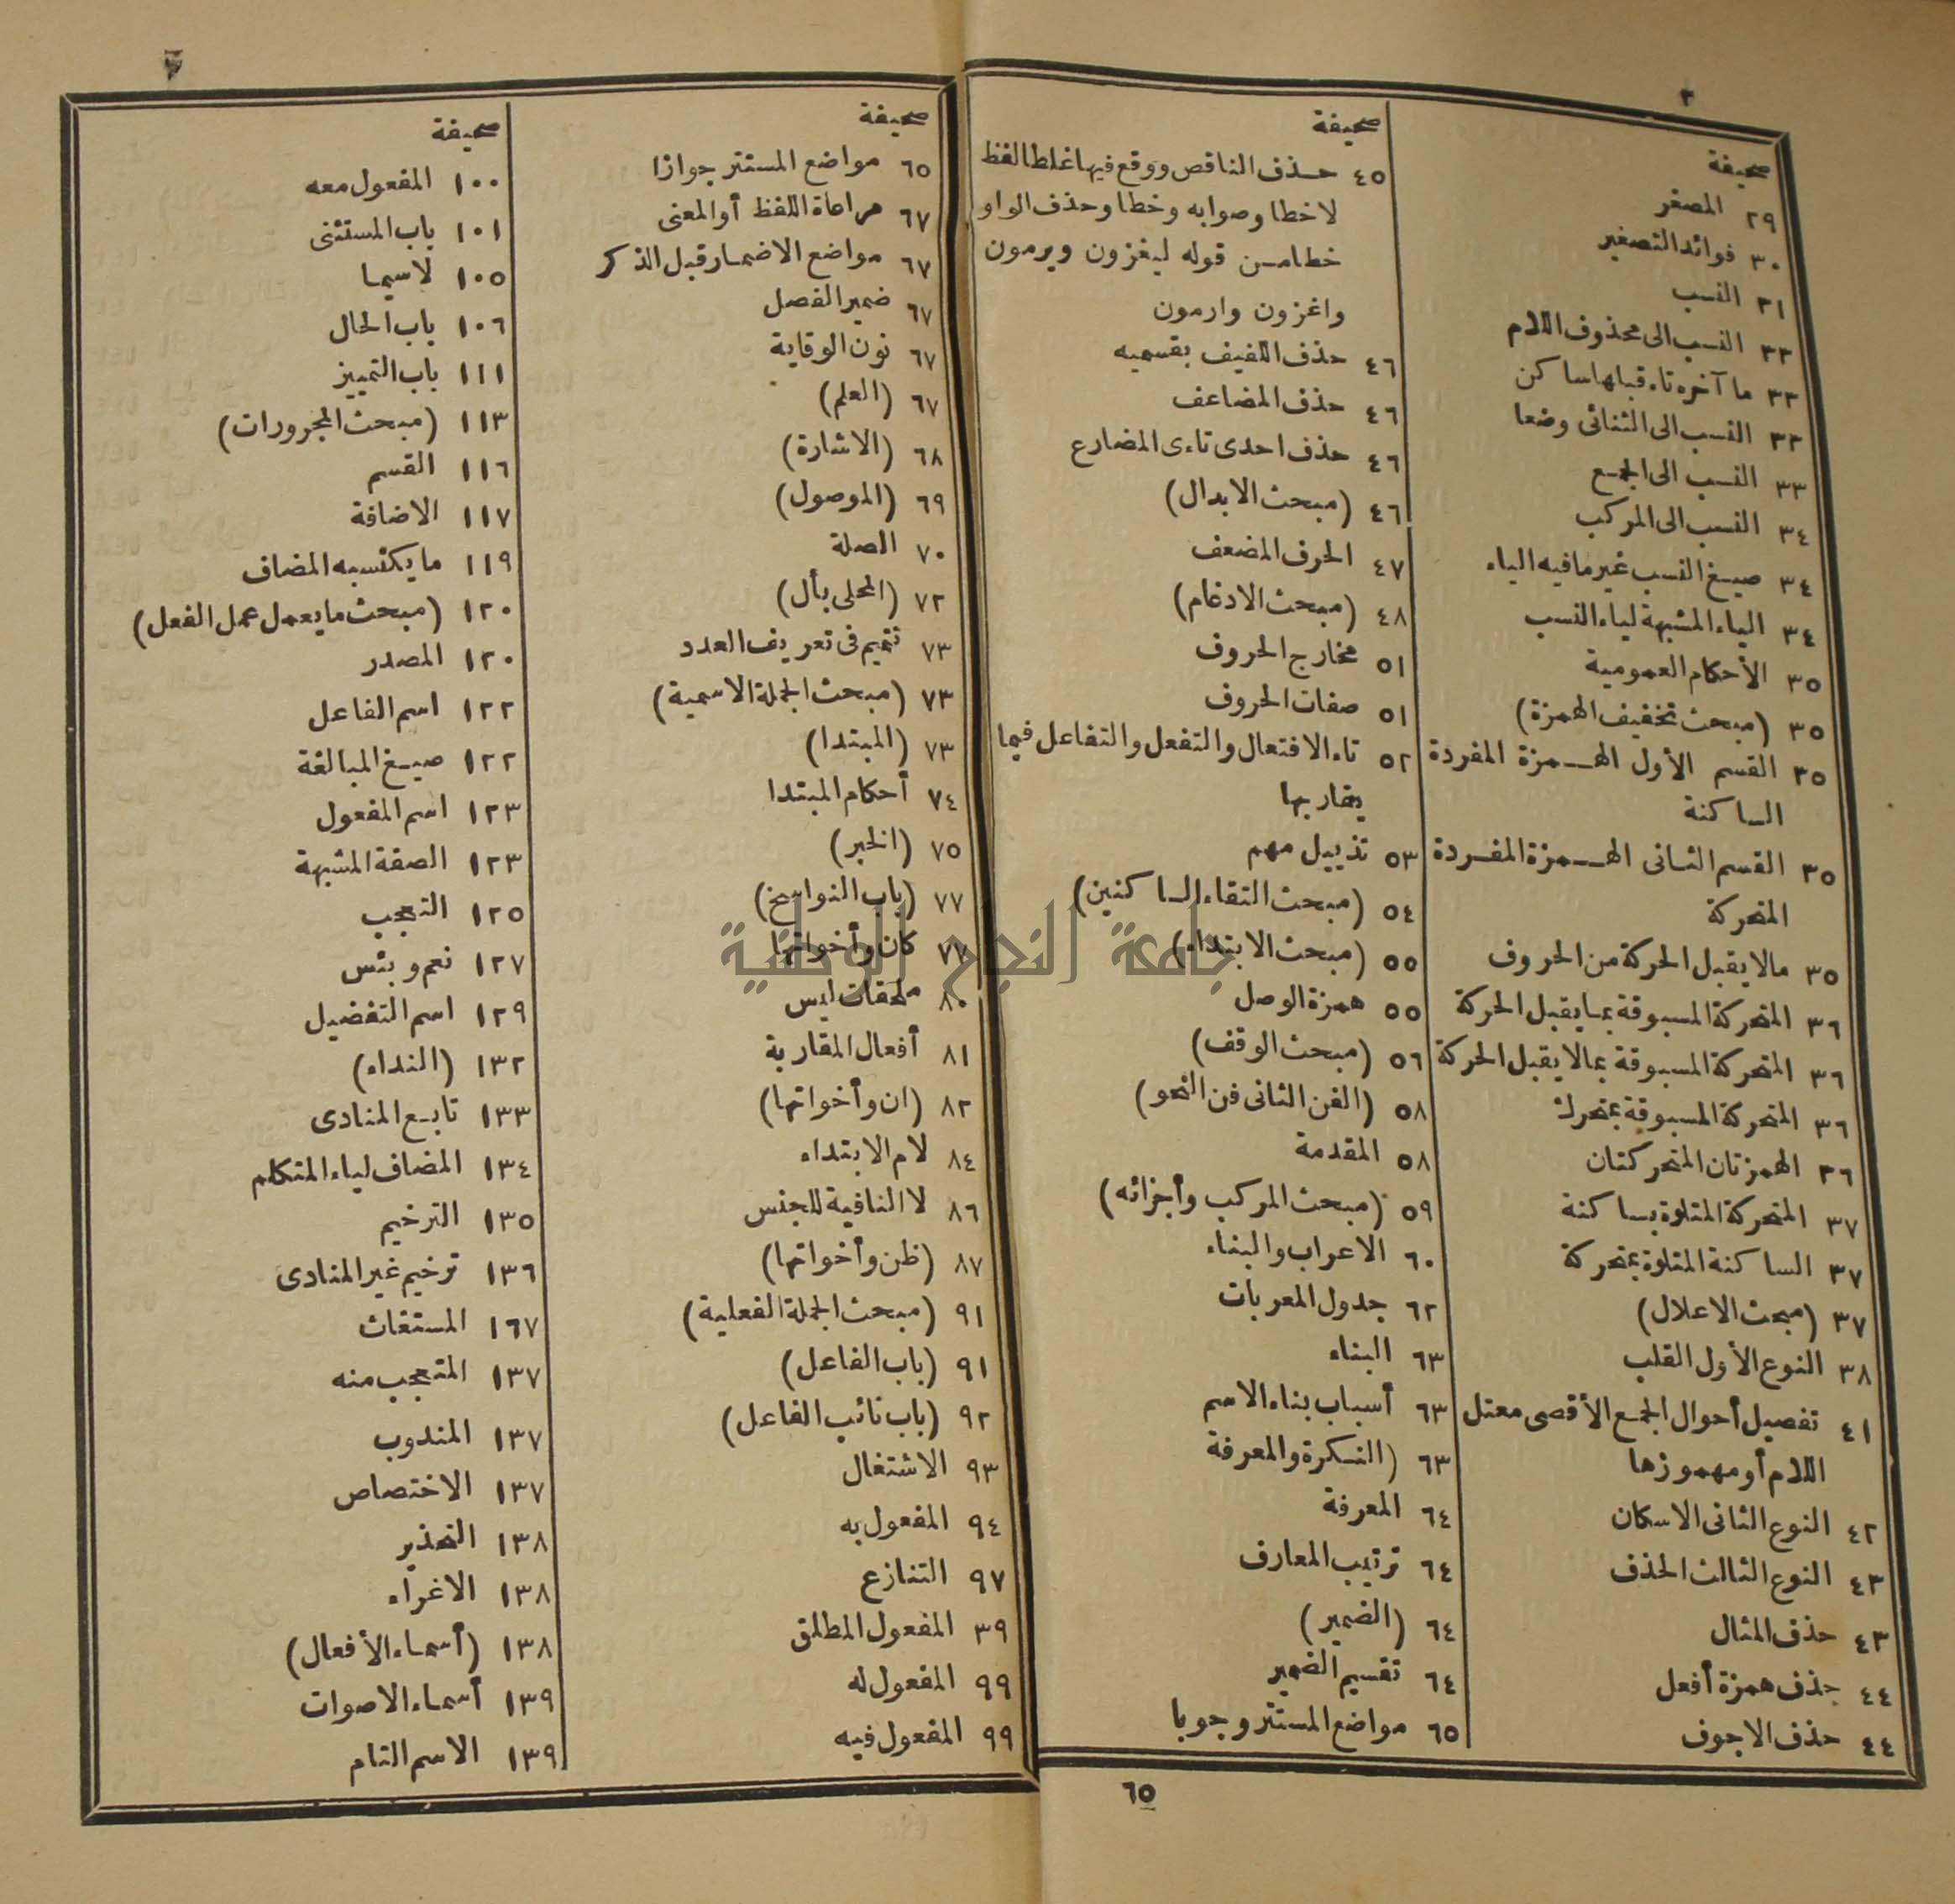 ٢
صحيفة
٢٩ المصغر
٣٠ فوائد التصغير
٣١ النسب
٣٢ النسب الى محذوف اللام
٣٣ ما آخره تاء قبلها ساكن
٣٣ النسب الى الثنائى وضعا
٣٣ النسب الى الجمع
٣٤ النسب الى المركب
٣٤ صيغ النسب غير ما فيه الياء
٣٤ الياء المشبهة لياء النسب
٣٥ الأحكام العمومية
٣٥ (مبحث تخفيف الهمزة)
٣٥ القسم الأول الهمزة المفردة
الساكنة
٣٥ القسم الثانى الهمزة المفردة
المتحركة
٣٥ مالا يقبل الحركة من الحروف
٣٦ المتحركة المسبوقة بما يقبل الحركة
٣٦ المتحركة المسبوقة بما لا يقبل الحركة
٣٦ المتحركة المسبوقة بمتحرك
٣٦ الهمزتان المتحركتان
٣٧ المتحركة المتلوة بساكنة
٣٧ الساكنة المتلوة بمتحركة
٣٧ (مبحث الاعلال)
٣٨ النوع الأول القلب
٤١ تفصيل أحوال الجمع الأقصى معتل
اللام أو مهموزها
٤٢ النوع الثانى الاسكان
٤٣ النوع الثالث الحذف
٤٣ حذف المثال
٤٤ حذف همزة أفعل
٤٤ حذف الاجوف
صحيفة
٤٥ حذف الناقص ووقع فيها غلطا لفظ
لاخطا وصوابه وخطا وحذف الواو
خطا من قوله ليغزون ويرمون
واغزون وارمون
٤٦ حذف اللفيف بقسميه
٤٦ حذف المضاعف
٤٦ حذف احدى تاءى المضارع
٤٦ (مبحث الابدال)
٤٧ الحرف المضعف
٤٨ (مبحث الادغام)
٥١ مخارج الحروف
٥١ صفات الحروف
٥٢ تاء الافتعال والتفعل والتفاعل فيما
يقاربها
٥٣ تذييل مهم
٥٤ (مبحث التقاء الساكنين)
٥٥ (مبحث الابتداء)
٥٥ همزة الوصل
٥٦ (مبحث الوقف)
٥٨ (الفن الثانى فن النحو)
٥٨ المقدمة
٥٩ (مبحث المركب وأجزائه)
٦٠ الاعراب والبناء
٦٢ جدول المعربات
٦٣ البناء
٦٣ أسباب بناء الاسم
٦٣ (النكرة والمعرفة
٦٤ المعرفة
٦٤ ترتيب المعارف
٦٤ (الضمير)
٦٤ تقسيم الضمير
٦٥ مواضع المستتر وجوبا
٦٥
٣
صحيفة
٦٥ مواضع المستتر جوازا
٦٧ مراعاة اللفظ أو المعنى
٦٧ مواضع الاضمار قبل الذكر
٦٧ ضمير الفصل
٦٧ نون الوقاية
٦٧ (العلم)
٦٨ (الاشارة)
٦٩ (الموصول)
٧٠ الصلة
٧٢ (المحلى بأل)
٧٣ تتميم فى تعريف العدد
٧٣ (مبحث الجملة الاسمية)
٧٣ (المبتدا)
٧٤ أحكام المبتدا
٧٥ (الخبر)
٧٧ (باب النواسخ)
٧٧ كان وأخواتها
٨٠ ملحقات ليس
٨١ أفعال المقاربة
٨٢ (ان وأخواتها)
٨٤ لام الابتداء
٨٦ لا النافية للجنس
٨٧ (ظن وأخواتها)
٩١ (مبحث الجملة الفعلية)
٩١ (باب الفاعل)
٩٢ (باب نائب الفاعل)
٩٣ الاشتغال
٩٤ المفعول به
٩٧ التنازع
٣٩ المفعول المطلق
٩٩ المفعول له
٩٩ المفعول فيه
صحيفة
١٠٠ المفعول معه
١٠١ باب المستثنى
١٠٥ لاسيما
١٠٦ باب الحال
١١١ باب التمييز
١١٣ (مبحث المجرورات)
١١٦ القسم
١١٧ الاضافة
١١٩ ما يكتسبه المضاف
١٢٠ (مبحث ما يعمل عمل الفعل)
١٢٠ المصدر
١٢٢ اسم الفاعل
١٢٢ صيغ المبالغة
١٢٣ اسم المفعول
١٢٣ الصفة المشبهة
١٢٥ التعجب
١٢٧ نعم وبئس
١٢٩ اسم التفضيل
١٣٢ (النداء)
١٣٣ تابع المنادى
١٣٤ المضاف لياء المتكلم
١٣٥ الترخيم
١٣٦ ترخيم غير المنادى
١٦٧ المستغاث
١٣٧ المتعجب منه
١٣٧ المندوب
١٣٧ الاختصاص
١٣٨ التحذير
١٣٨ الاغراء
١٣٨ (أسماء الأفعال)
١٣٩ أسماء الاصوات
١٣٩ الاسم التام
جامعة النجاح الوطنية